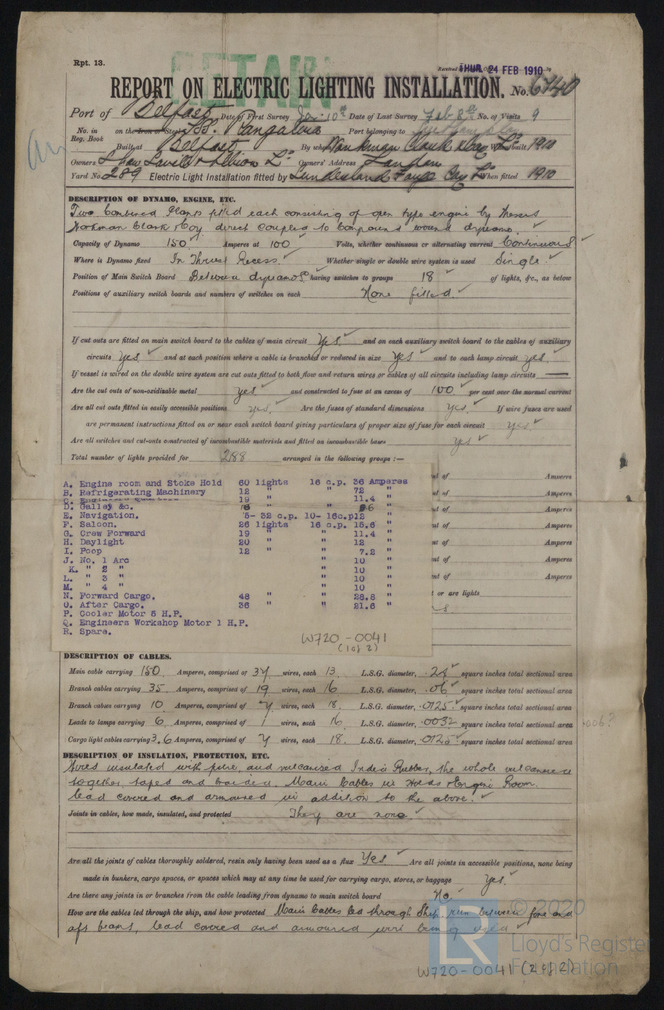 Rpt. 13.
RETAIN
THUR. 24 FEB 1910
REPORT ON ELECTRIC LIGHTING INSTALLATION. No. 6740
Port of Belfast Date of First Survey Jan 10th Date of Last Survey Feb 8th No. of Visits 9
No. in Reg. Book on the Iron or Steel S.S. Port belonging to
Built at Belfast By whom Workman Clark & Coy Ld When built 1910
Owners Shaw Savill & Albion Ld Owners' Address London
Yard No. 289 Electric Light Installation fitted by Sunderland Forge Coy Ld When fitted 1910
DESCRIPTION OF DYNAMO, ENGINE, ETC.
Two Combined Plants fitted each consisting of open type engine by Messrs
Workman Clark & Coy direct coupled to Compound wound dynamo.
Capacity of Dynamo 150 Amperes at 100 Volts, whether continuous or alternating current Continuous
Where is Dynamo fixed In Thrust Recess. Whether single or double wire system is used Single.
Position of Main Switch Board Between dynamos having switches to groups 18 of lights, &c., as below
Positions of auxiliary switch boards and numbers of switches on each None fitted.
If cut outs are fitted on main switch board to the cables of main circuit Yes. and on each auxiliary switch board to the cables of auxiliary
circuits Yes and at each position where a cable is branched or reduced in size Yes and to each lamp circuit Yes.
If vessel is wired on the double wire system are cut outs fitted to both flow and return wires or cables of all circuits including lamp circuits —
Are the cut outs of non-oxidizable metal Yes. and constructed to fuse at an excess of 100 per cent over the normal current
Are all cut outs fitted in easily accessible positions Yes. Are the fuses of standard dimensions Yes. If wire fuses are used
are permanent instructions fitted on or near each switch board giving particulars of proper size of fuse for each circuit Yes
Are all switches and cut-outs constructed of incombustible materials and fitted on incombustible bases Yes
Total number of lights provided for 288 arranged in the following groups :—
A. Engine room and Stoke Hold 60 lights 16 c.p. 36 Amperes
B. Refrigerating Machinery 12 " " 72 "
19 " " 11.4 "
D. Galley &c. " "
E. Navigation. 5- 32 c.p. 10- 16cp12 "
F. Saloon. 26 lights 16 c.p. 15.6 "
G. Crew Forward 19 " " 11.4 "
H. Daylight 20 " " 12 "
I. Poop 12 " " 7.2 "
J. No. 1 Arc " 10 "
K. " 2 " " 10 "
L. " 3 " " 10 "
M. " 4 " " 10 "
N. Forward Cargo. 48 " " 28.8 "
O. After Cargo. 36 " " 21.6 "
P. Cooler Motor 5 H.P.
Q. Engineers Workshop Motor 1 H.P.
R. Spare.
W720-0041
(1 of 2)
of Amperes
of Amperes
of Amperes
of Amperes
of Amperes
or are lights
DESCRIPTION OF CABLES.
Main cable carrying 150 Amperes, comprised of 37 wires, each 13 L.S.G. diameter, .25 square inches total sectional area
Branch cables carrying 35 Amperes, comprised of 19 wires, each 16 L.S.G. diameter, .06 square inches total sectional area
Branch cables carrying 10 Amperes, comprised of 7 wires, each 18 L.S.G. diameter, .0125 square inches total sectional area
Leads to lamps carrying 6 Amperes, comprised of 1 wires, each 16 L.S.G. diameter, .0032 square inches total sectional area
Cargo light cables carrying 3.6 Amperes, comprised of 7 wires, each 18 L.S.G. diameter, .0125 square inches total sectional area
DESCRIPTION OF INSULATION, PROTECTION, ETC.
Wires insulated with pure, and vulcanised India Rubber, the whole vulcanised
together, taped and braided. Main Cables in Holds & Engine Room.
lead covered and armoured in addition to the above.
Joints in cables, how made, insulated, and protected They are none
Are all the joints of cables thoroughly soldered, resin only having been used as a flux Yes Are all joints in accessible positions, none being
made in bunkers, cargo spaces, or spaces which may at any time be used for carrying cargo, stores, or baggage Yes.
Are there any joints in or branches from the cable leading from dynamo to main switch board No
How are the cables led through the ship, and how protected Main Cables led through Ship, run between fore and
aft beams, lead covered and armoured wire being used
© 2020
Lloyd's Register
Foundation
W720-0041 (2 of 2)